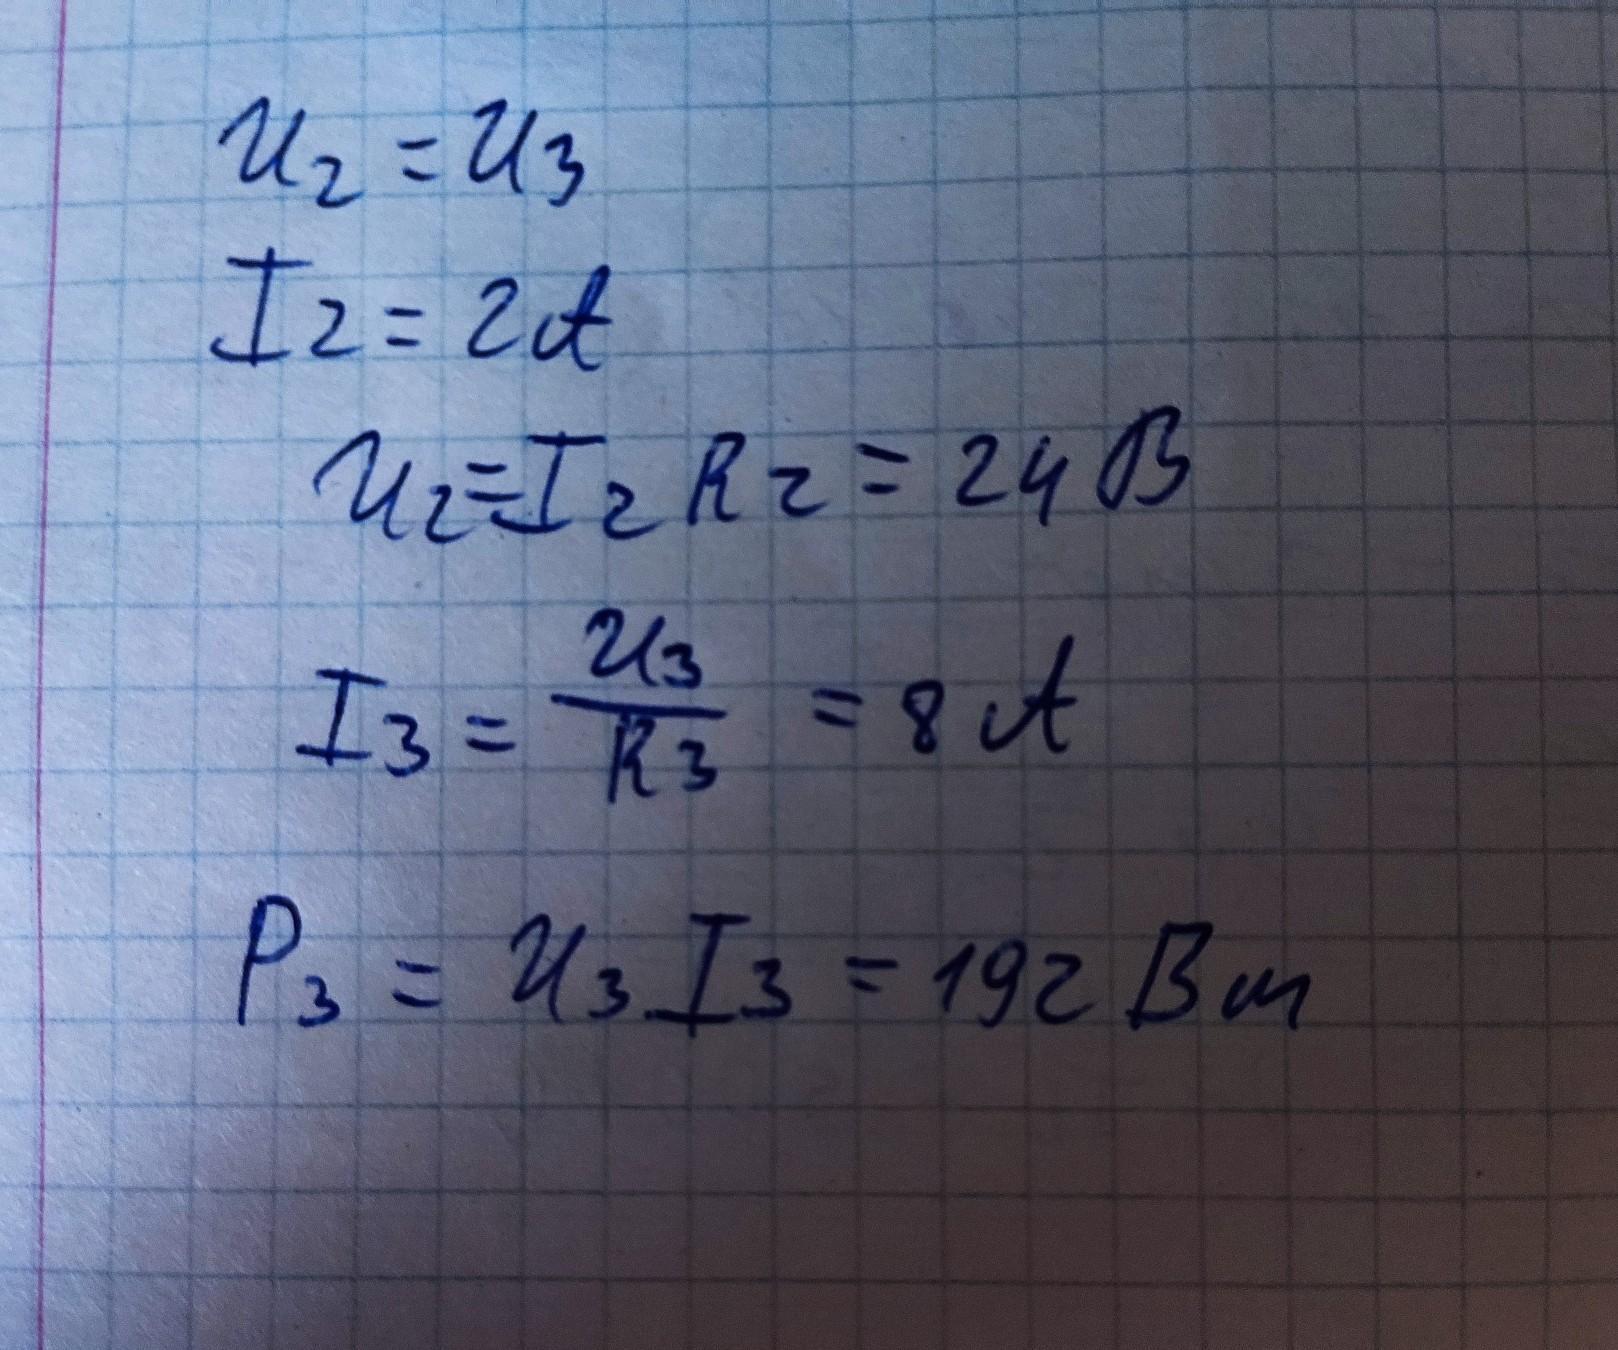 U2 = U3
I2 = 2A
U2 = I2 R2 = 24 В
I3 = U3/R3 = 8 A
P3 = U3 I3 = 192 Вт